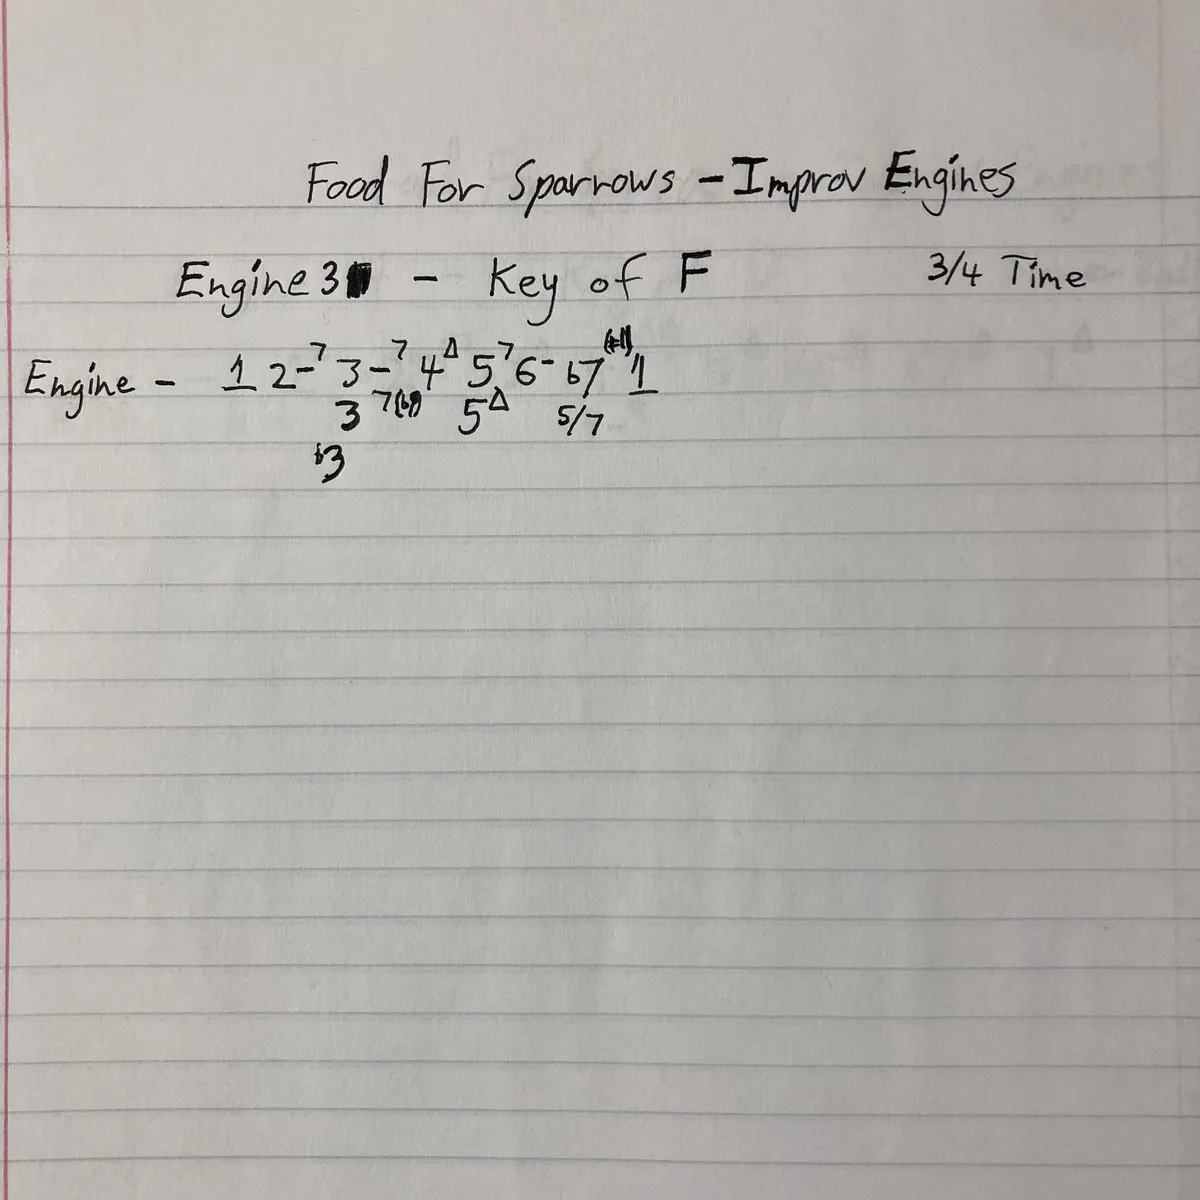 Food For Sparrows - Improv Engines
Engine 3 - Key of F 3/4 Time
Engine - 1 2-7 3-7 4Δ 57 6- b7(#11) 1
3 7(b9) 5Δ 5/7
b3